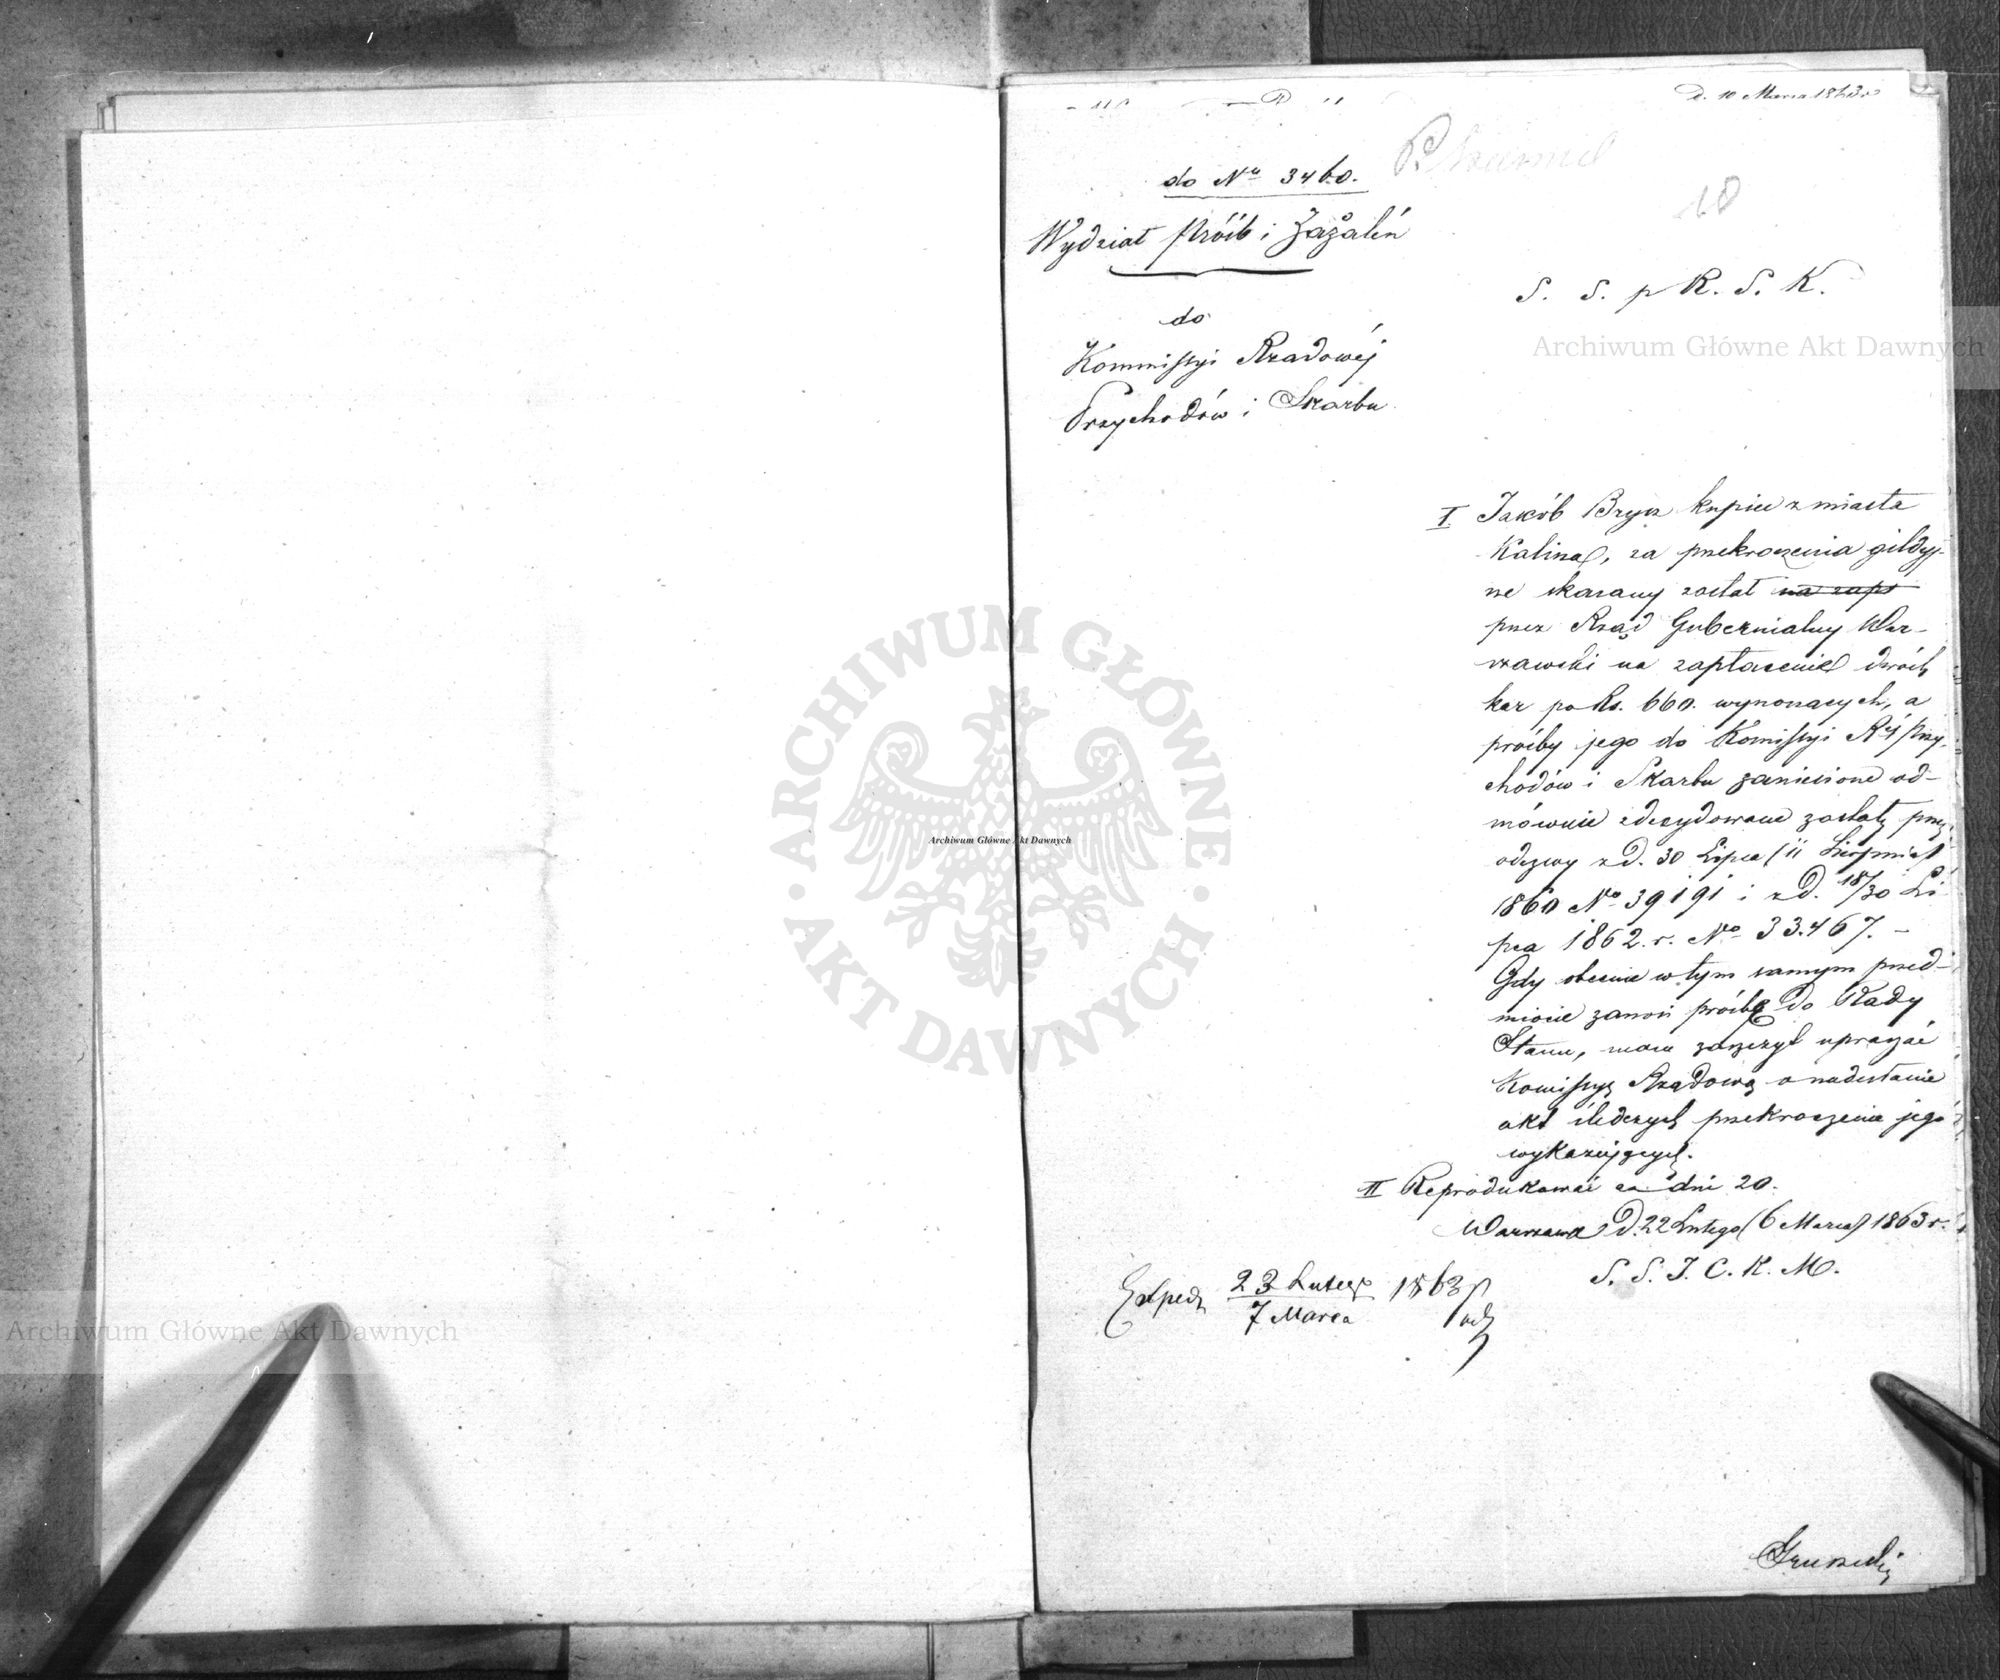 D. 10 Marca 1863 r.
do No 3460.
10
Wydział Próśb i Zażaleń
S. S. p R. S. K.
do
Kommissyi Rządowéj
Przychodów i Skarbu
I. Jakób Brysz kupiec z miasta
Kalisza, za przekroczenia gildyj-
ne skazany został na zapł
przez Rząd Gubernialny War-
szawski na zapłacenie dwóch
kar po Rs. 660. wynoszących, a
prośby jego do Komissyi R-éj Przy-
chodów i Skarbu zaniesione od-
mównie zdecydowane zostały przez
odezwy z D. 30 Lipca / 11 Sierpnia
1860 No 39191 i z D. 18/30 Li-
pca 1862. r. No 33.467. -
Gdy obecnie w tym samym przed-
miocie zanosi prośbę do Rady
Stanu, mam zaszczyt upraszać
Komissyę Rządową o nadesłanie
akt śledczych przekroczenia jego
wykazujących.
II Reprodukować za dni 20.
Warszawa D. 22 Lutego (6 Marca) 1863 r.
S. S. J. C. K. M.
Exped. 23 Lutego 1863 r
7 Marca
Archiwum Główne Akt Dawnych
ARCHIWUM GŁÓWNE AKT DAWNYCH
Archiwum Główne Akt Dawnych
Archiwum Główne Akt Dawnych